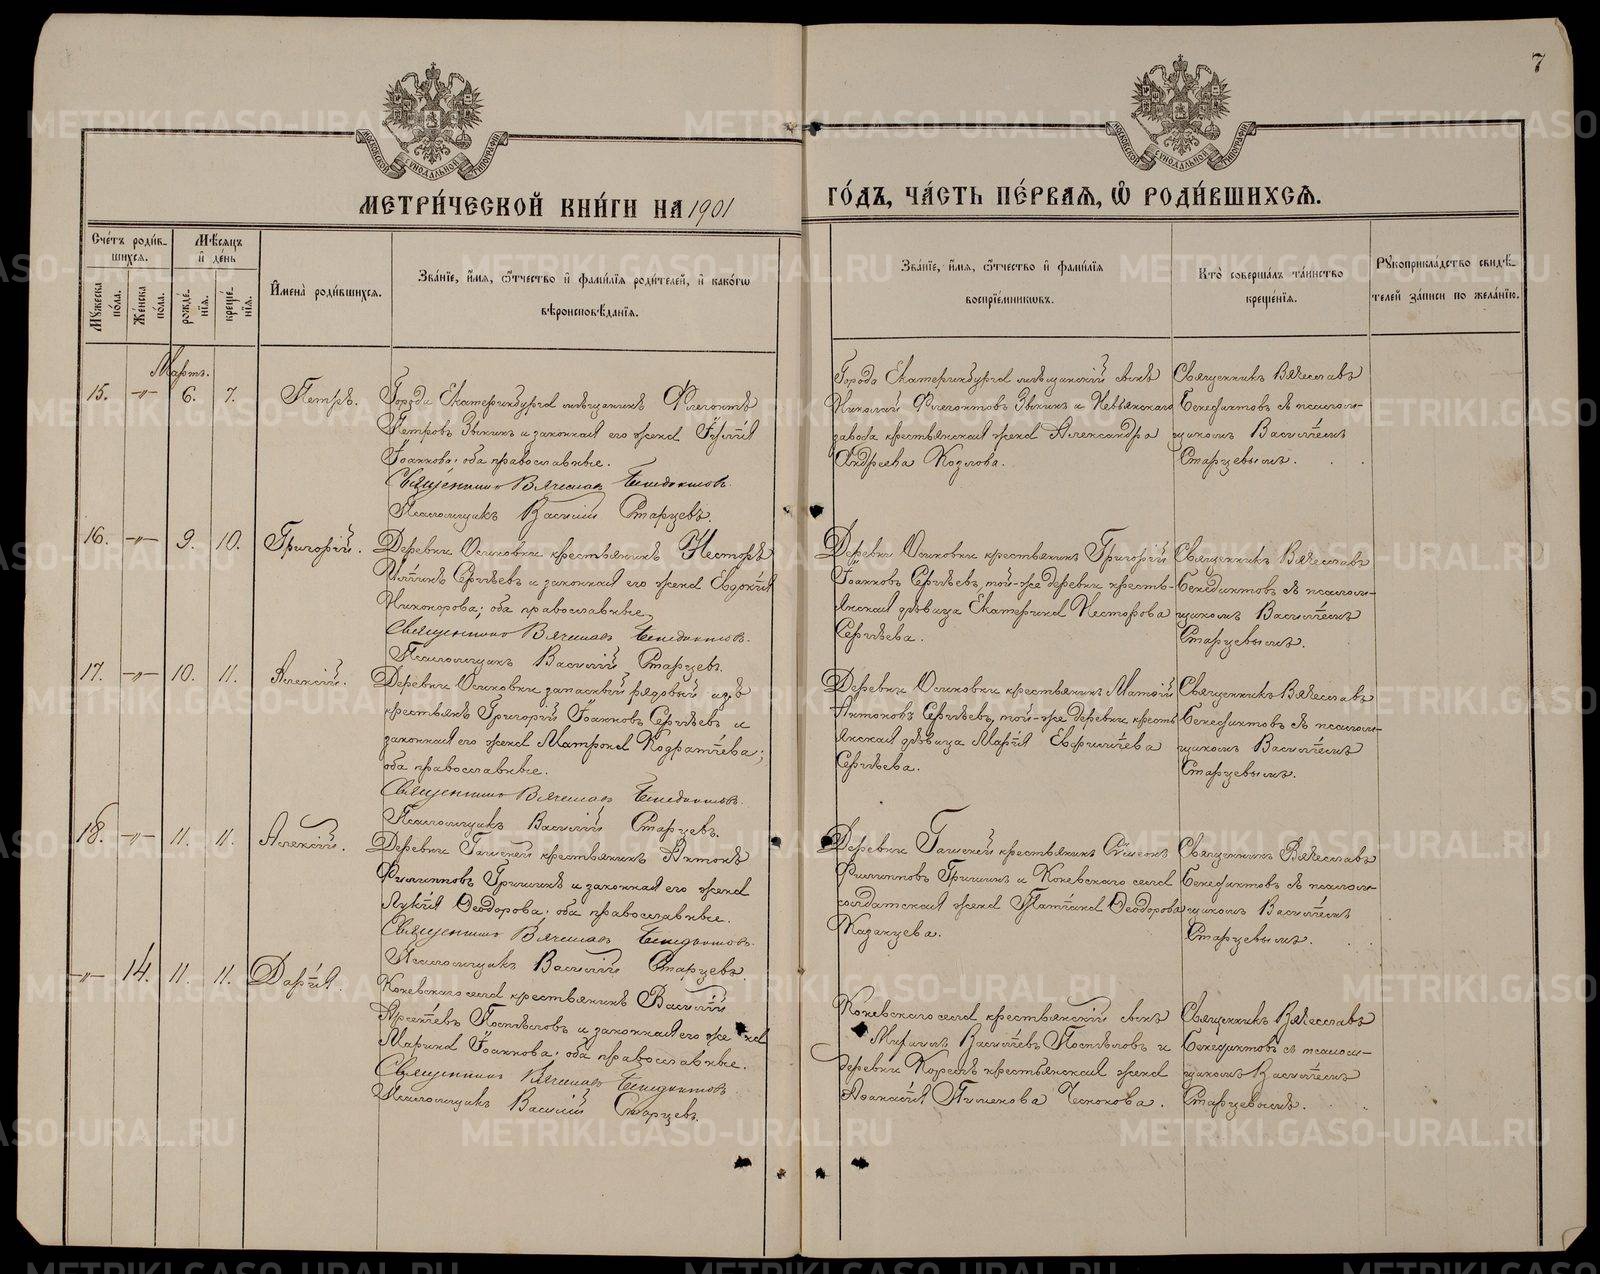 7
МОСКОВСКОЙ СУНОДАЛЬНОЙ ТИПОГРАФІИ
МОСКОВСКОЙ СУНОДАЛЬНОЙ ТИПОГРАФІИ
МЕТРИ́ЧЕСКОЙ КНИ́ГИ НА 1901 ГО́ДЪ, ЧА́СТЬ ПЕ́РВАЯ, Ѽ РОДИ́ВШИХСЯ.
Сче́тъ роди́в-
шихся.
Мѣ́сяцъ
и҆ де́нь
Мꙋ́жеска по́ла.
Же́нска по́ла.
рожде́-
нїя.
креще́-
нїя.
И҆мена̀ роди́вшихся.
Зва́нїе, и҆́мя, ѻ҆́тчество и҆ фами́лїя роди́телей, и҆ како́гѡ
вѣроисповѣ́данїя.
Зва́нїе, и҆́мя, ѻ҆́тчество и҆ фами́лїя
воспрїе́мниковъ.
Кто̀ соверша́лъ та́инство
креще́нїя.
Рꙋкоприкла́дство свидѣ́-
телей за́писи по жела́нїю.
Мартъ.
15. -„- 6. 7. Петръ.
Города Екатеринбурга мѣщанинъ Флегонтъ
Петровъ Зыкинъ и законная его жена Іулія
Іоаннова; оба православные.
Священникъ Вячеславъ Бенедиктовъ.
Псаломщикъ Василій Старцевъ.
Города Екатеринбурга мѣщанскій сынъ
Николай Флегонтовъ Зыкинъ и Невьянскаго
завода крестьянская жена Александра
Андреева Козлова.
Священникъ Вячеславъ
Бенедиктовъ съ псалом-
щикомъ Василіемъ
Старцевымъ.
16. -„- 9. 10. Григорій.
Деревни Осиновки крестьянинъ Несторъ
Сергѣевъ и законная его жена Евдокія
Никонорова; оба православные
Священникъ Вячеславъ Бенедиктовъ.
Псаломщикъ Василій Старцевъ.
Деревни Осиновки крестьянинъ Григорій
Іоанновъ Сергѣевъ, той-же деревни кресть-
янская дѣвица Екатерина Несторова
Сергѣева.
Священникъ Вячеславъ
Бенедиктовъ съ псалом-
щикомъ Василіемъ
Старцевымъ.
17. -„- 10. 11. Алексій.
Деревни Осиновки запасный рядовый изъ
крестьянъ Григорій Іоанновъ Сергѣевъ и
законная его жена Матрона Кодратіева;
оба православные.
Священникъ Вячеславъ Бенедиктовъ.
Псаломщикъ Василій Старцевъ.
Деревни Осиновки крестьянинъ Матѳій
Антоновъ Сергѣевъ, той-же деревни кресть
янская дѣвица Марія
Сергѣева.
Священникъ Вячеславъ
Бенедиктовъ съ псалом-
щикомъ Василіемъ
Старцевымъ.
18. -„- 11. 11. Алексій.
Деревни крестьянинъ Антонъ
Филипповъ Гришинъ и законная его жена
Лукія Ѳеодорова; оба православные.
Священникъ Вячеславъ Бенедиктовъ.
Псаломщикъ Василій Старцевъ
Деревни крестьянинъ Симеонъ
Филипповъ Гришинъ и Коневскаго села
солдатская жена Татіана Ѳеодорова
Казанцева.
Священникъ Вячеславъ
Бенедиктовъ съ псалом-
щикомъ Василіемъ
Старцевымъ.
-„- 14. 11. 11. Дарія.
Коневскаго села крестьянинъ Василій
Арсеніевъ Поспѣловъ и законная его жена
Марина Іоаннова; оба православные.
Священникъ Вячеславъ Бенедиктовъ
Псаломщикъ Василій Старцевъ.
Коневскаго села крестьянскій сынъ
Василіевъ Поспѣловъ и
деревни крестьянская жена
Аѳанасія Пименова
Священникъ Вячеславъ
Бенедиктовъ съ псалом-
щикомъ Василіемъ
Старцевымъ.
METRIKI.GASO-URAL.RU